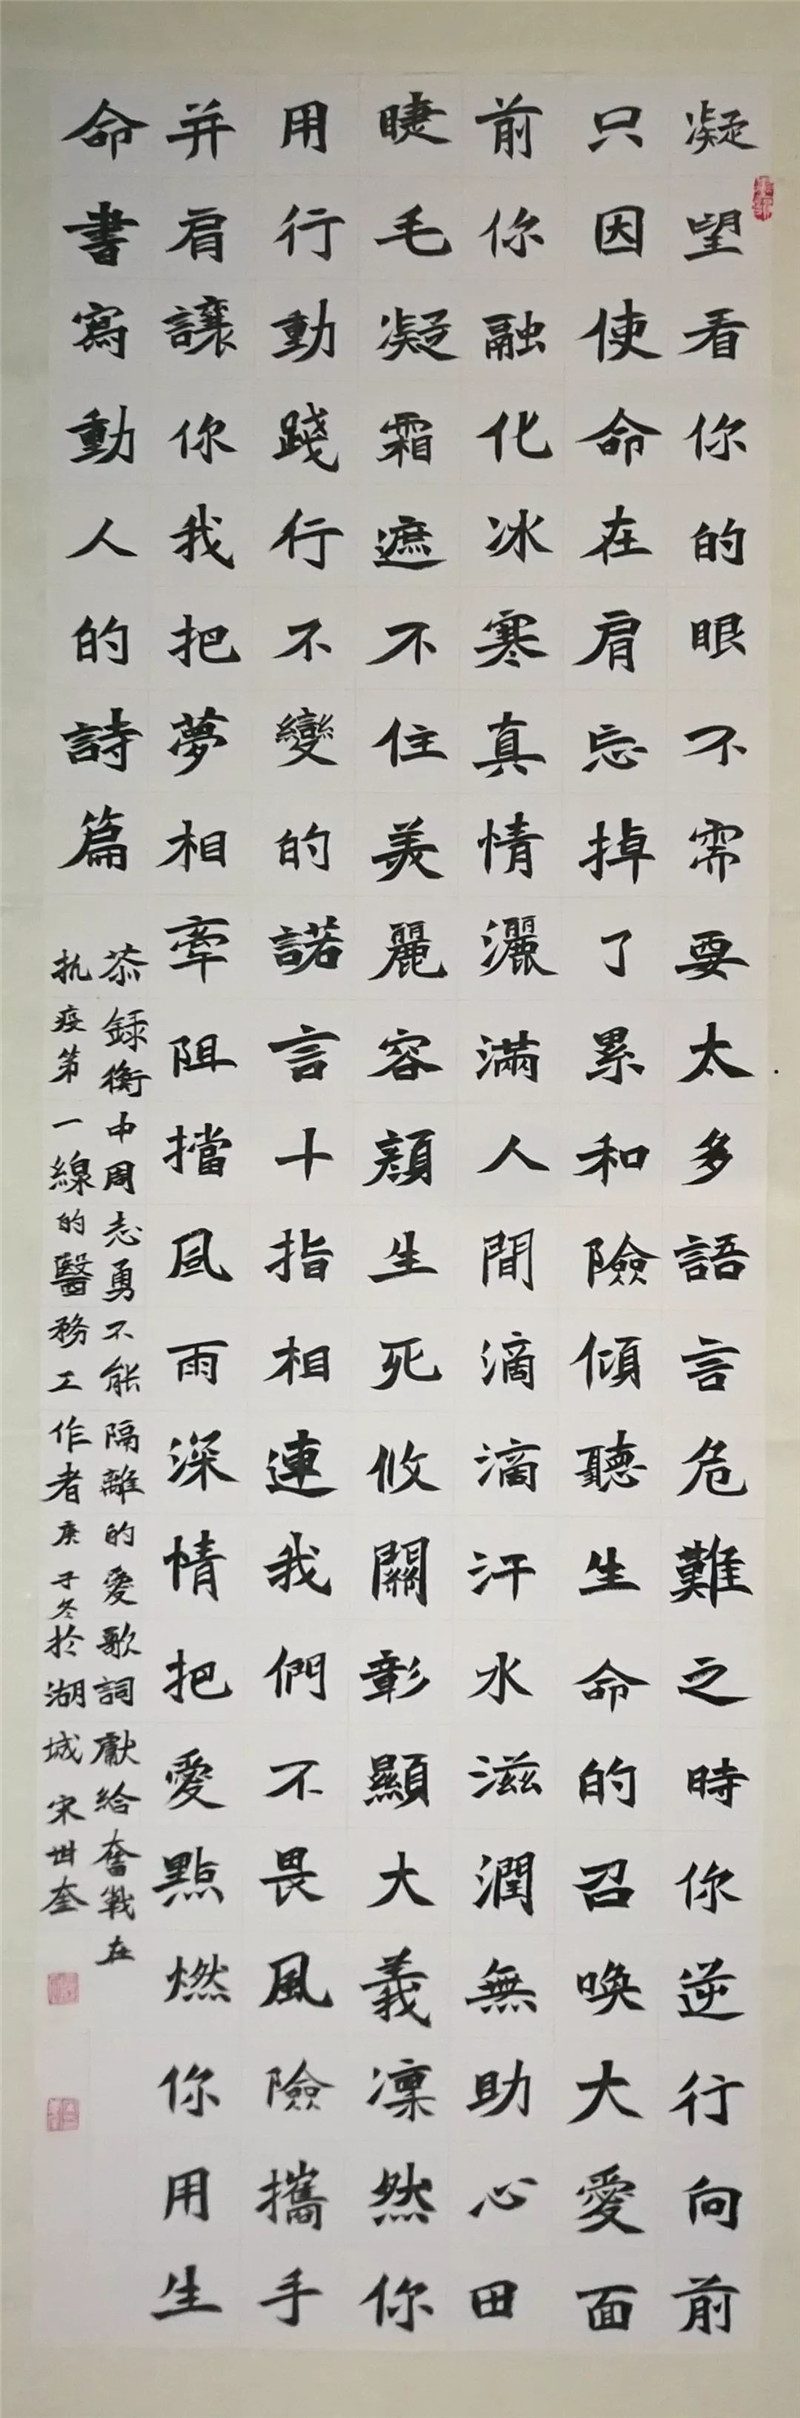 凝望看你的眼不需要太多語言危難之時你逆行向前
只因使命在肩忘掉了累和險傾聽生命的召喚大愛面
前你融化冰寒真情灑滿人間滴滴汗水滋潤無助心田
睫毛凝霜遮不住美麗容顏生死攸關彰顯大義凜然你
用行動踐行不變的諾言十指相連我們不畏風險攜手
并肩讓你我把夢相牽阻擋風雨深情把愛點燃你用生
命書寫動人的詩篇
恭録衡中周志勇不能隔離的愛歌詞獻給奮戰在
抗疫第一線的醫務工作者庚子冬於湖城宋世奎